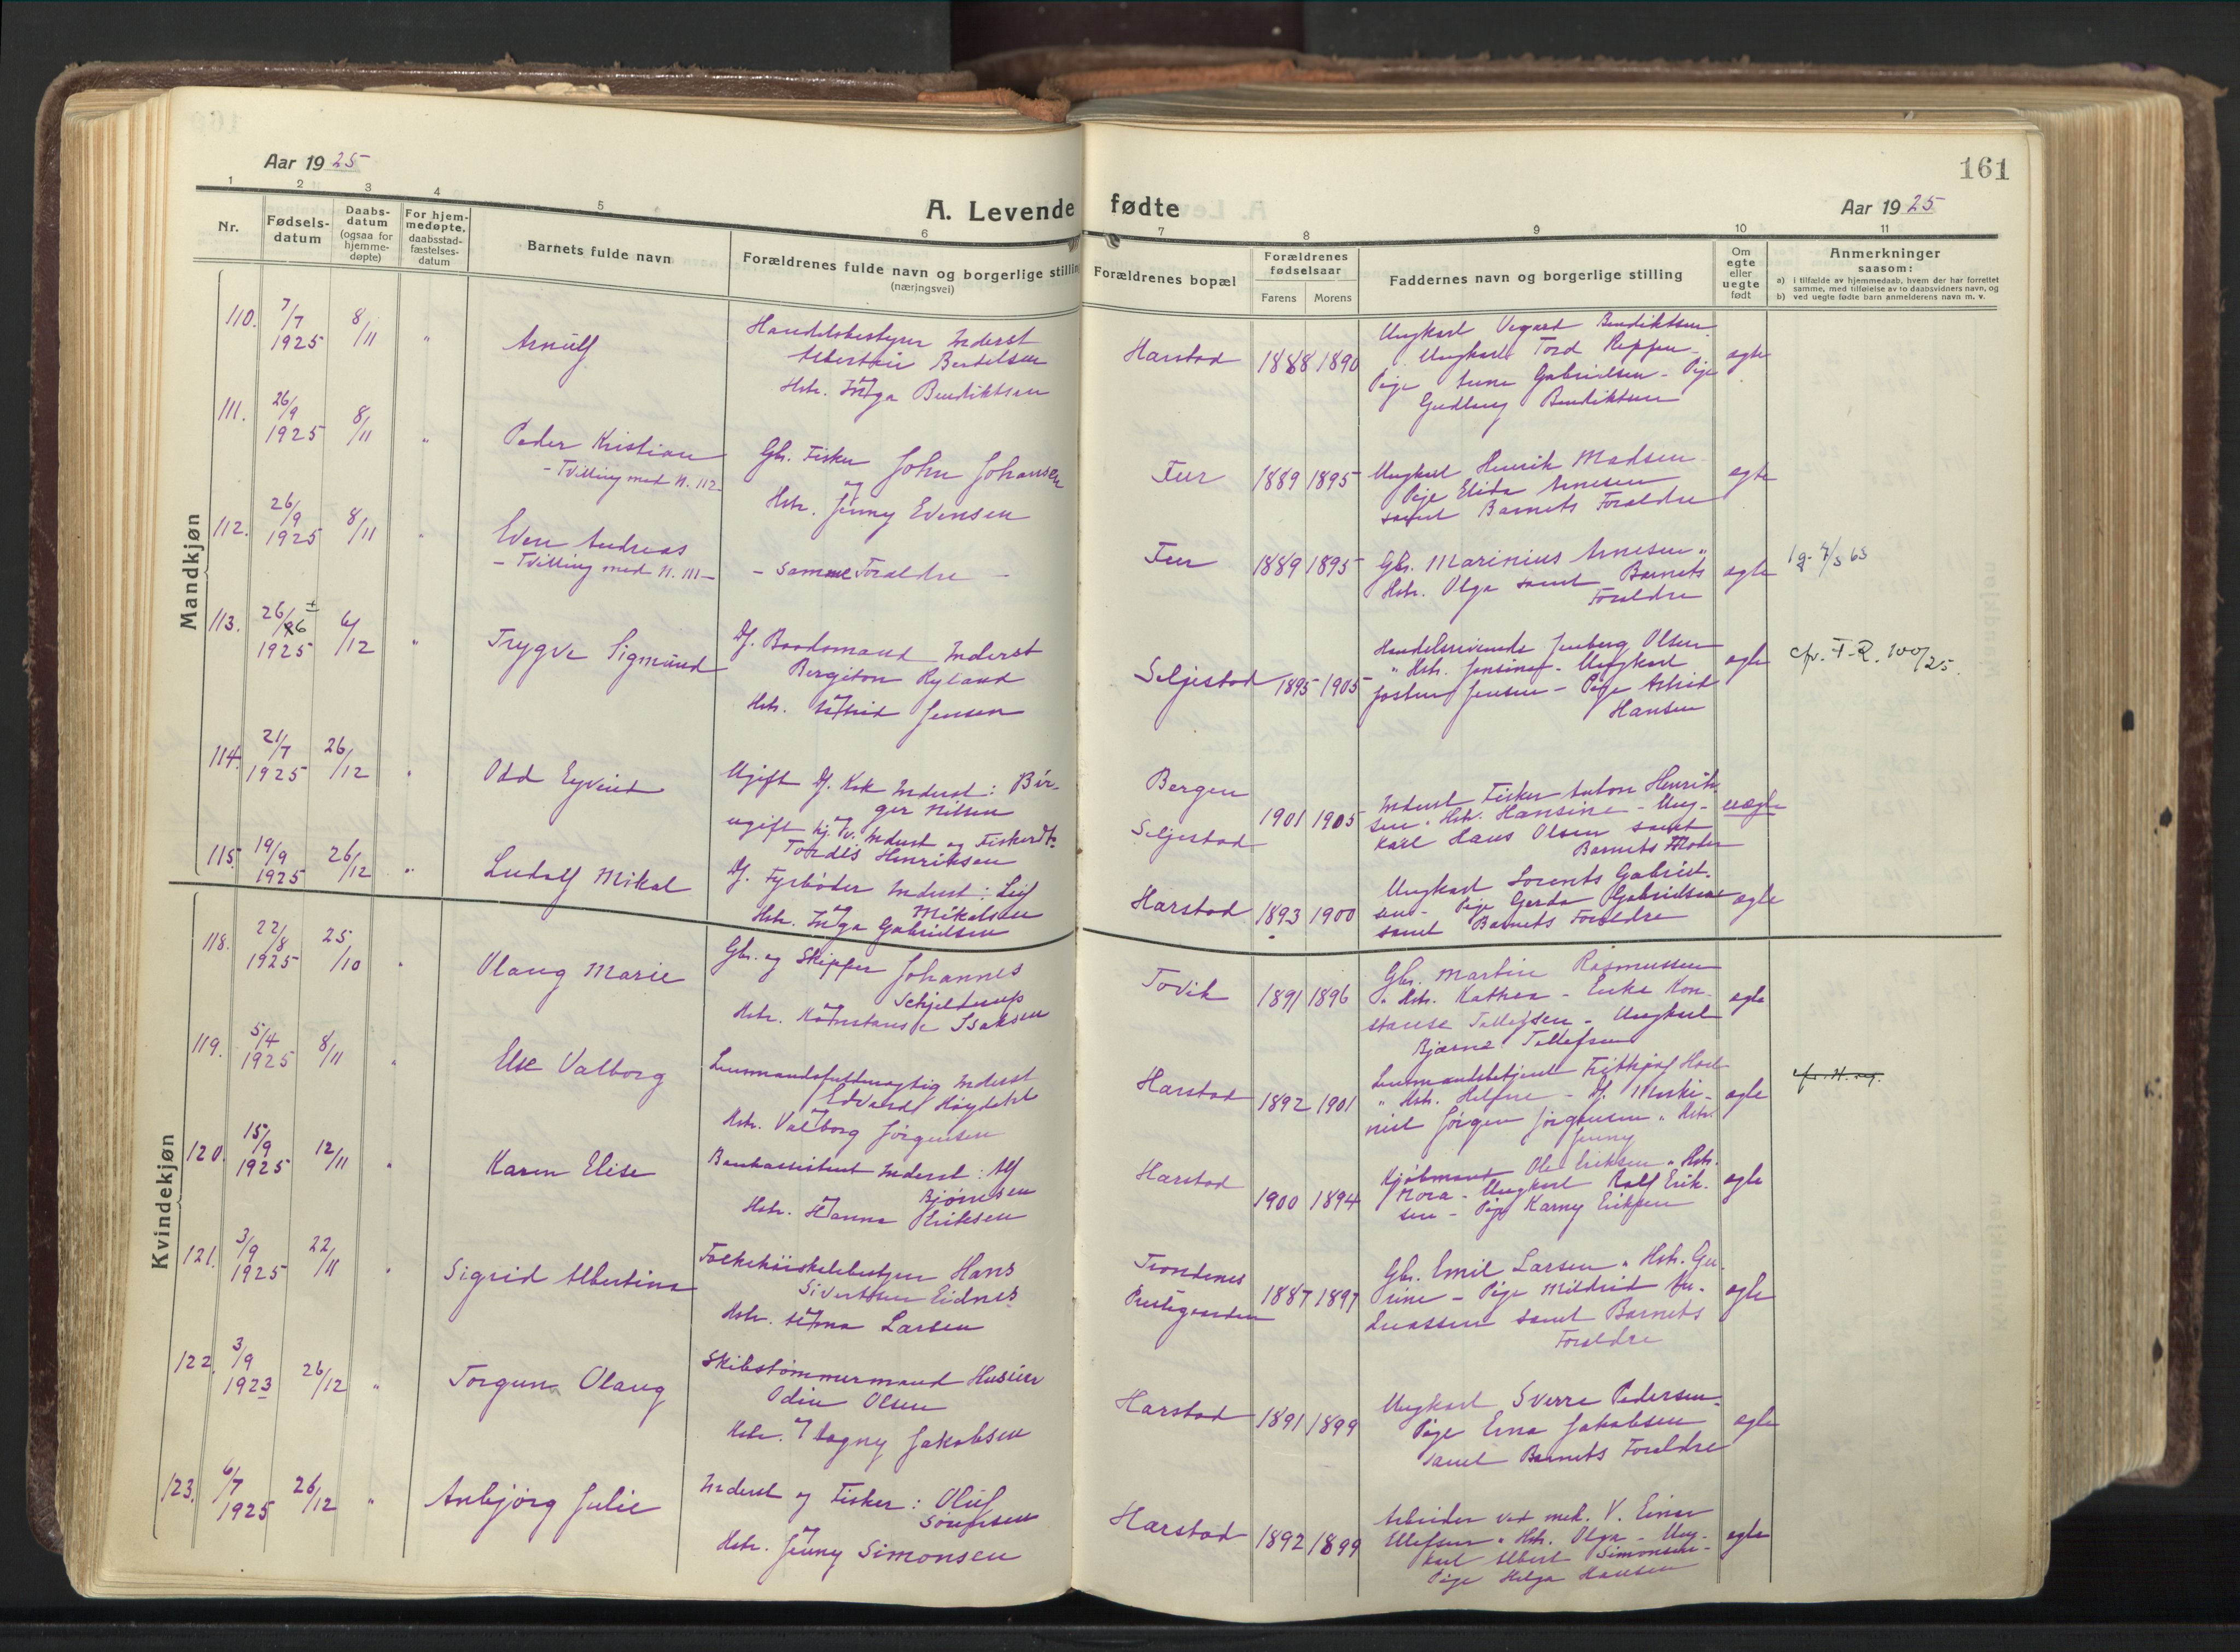 161
Aar 1925
Aar 1925
A. Levende fødte
1 2 3 4 5 6 7 8 9 10 11
Nr.
Fødsels-
datum
Daabs-
datum
(ogsaa for
hjemme-
døpte)
For hjem-
medøpte,
daabsstad-
fæstelses-
datum
Barnets fulde navn
Forældrenes fulde navn og borgerlige stilling
(næringsvei)
Forældrenes bopæl
Forældrenes
fødselsaar
Farens Morens
Faddernes navn og borgerlige stilling
Om
egte
eller
uegte
født
Anmerkninger
saasom:
a) i tilfælde av hjemmedaab, hvem der har forrettet
samme, med tilføielse av to daabsvidners navn, og
b) ved uegte fødte barn anmelderens navn m. v.
Mandkjøn
110. 7/7 1925 8/11 " Arnulf
Handelsbestyrer Inderst
Albertein Bendiksen
og
Hstr. Inga Bendiktsen
Harstad 1888 1890
Ungkarl Vegard Bendiktsen
Ungkarl Tord Reppen -
Pige Anna Gabrielsen - Pige
Gudlaug Bendiktsen
ægte
111. 26/9 1925 8/11 " Peder Kristian
- Tvilling med N. 112
Gbr. Fisker John Johansen
og
Hstr. Jenny Evensen
Fur 1889 1895
Ungkarl Henrik Madsen
Pige Elida Arnesen
samt Barnets Foraldre
ægte
112. 26/9 1925 8/11 " Even Andreas
- Tvilling med N. 111 -
- Samme Foraldre -
Fur 1889 1895
Gbr. Marinius Arnesen "
Hstr. Olga samt Barnets
Foraldre
ægte
113. 26/6 1925 6/12 " Trygve Sigmund
Df. Baadsmand Inderst
Bergiton Ryland
og
Hstr. Astrid Jensen
Seljestad 1895 1905
Handelsreisende Jenberg Olsen
" Hstr. Jensine - Ungkarl
Jostein Jensen - Pige Astrid
Hansen
ægte
cfr. T-R. 100/25.
114. 21/7 1925 26/12 " Odd Eyvind
Ugift Df. Kok Inderst: Bir-
ger Nilsen
og
ugift Inderst og Fiskerdt.
Tordis Henriksen
Bergen
Seljestad
1901 1905
Inderst Fisker Anton Henrik-
sen " Hstr. Hansine - Ung-
karl Hans Olsen samt
Barnets Moder
uægte
115. 19/9 1925 26/12 " Ludolf Mikal
Df. Fyrbøder Inderst: Leif
Mikalsen
og
Hstr. Inga Gabrielsen
Harstad 1893 1900
Ungkarl Lorents Gabriel-
sen - Pige Gerda Gabrielsen
samt Barnets Foraldre
ægte
Kvindekjøn
118. 22/8 1925 25/10 " Olaug Marie
Gbr. og Skipper Johannes
Schjelderup
og
Hstr. Konstanse Isaksen
Tovik 1891 1896
Gbr. Martin Rasmussen
" Hstr. Kathea - Enke Kon-
stanse Tollefsen - Ungkarl
Bjarne Tollefsen
ægte
119. 5/4 1925 8/11 " Else Valborg
Lensmandsfuldmægtig Inderst
Edvard Høydahl
og
Hstr. Valborg Jørgensen
Harstad 1892 1901
Lensmandsbetjent Frithjof
" Hstr. - Df. Maski-
nist Jørgen Jørgensen " Hstr.
Jenny
ægte
120. 15/9 1925 12/11 " Karen Elise
Bankassistent Inderst: Alf
Bjørnsen
og
Hstr. Hanna Eriksen
Harstad 1900 1894
Kjøbmand Ole Eriksen " Hstr.
Nora - Ungkarl Ralf Erik-
sen - Pige Karny Eriksen
ægte
121. 3/9 1925 22/11 " Sigrid Albertina
Folkehøiskolebestyrer Hans
Sivertsen Eidnes
og
Hstr. Anna Larsen
Trondenes
Prestegaarden
1887 1897
Gbr. Emil Larsen " Hstr. Gu-
rine - Pige Mildrid An-
dreassen samt Barnets
Foraldre
ægte
122. 3/9 1923 26/12 " Torgun Olaug
Skibstømmermand Huseier
Odin Olsen
og
Hstr. Dagny Jakobsen
Harstad 1891 1899
Ungkarl Sverre Pedersen -
Pige Erna Jakobsen
samt Barnets Foraldre
ægte
123. 6/7 1925 26/12 " Anbjørg Julie
Inderst og Fisker: Oluf
Sørensen
og
Hstr. Jenny Simonsen
Harstad 1892 1899
Arbeider ved mek. V. Einar
Ellefsen " Hstr. Olga - Ung-
karl Albert Simonsen -
Pige Helga Hansen
ægte